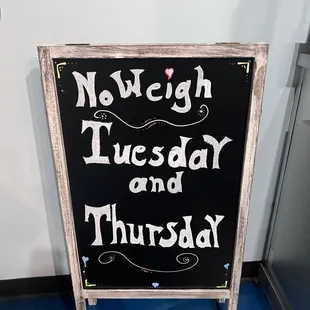 No Weigh
Tuesday
and
Thursday